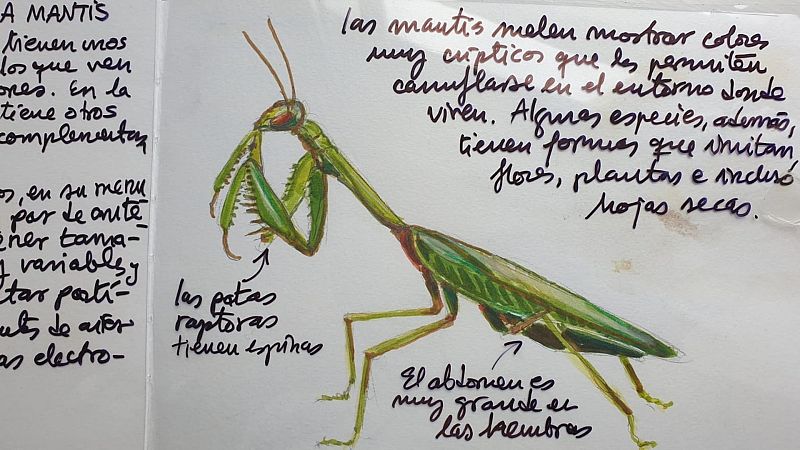 A MANTIS
tienen unos
los que ven
ores. En la
tiene otros
complementa
os, en su menú
por de anté
ener tama-
y variables y
tar partí-
as electro-
las mantis suelen mostrar colores
muy crípticos que les permiten
camuflarse en el entorno donde
viven. Algunas especies, además,
tienen formas que imitan
flores, plantas e incluso
hojas secas.
las patas
raptoras
tienen espinas
El abdomen es
muy grande en
las hembras